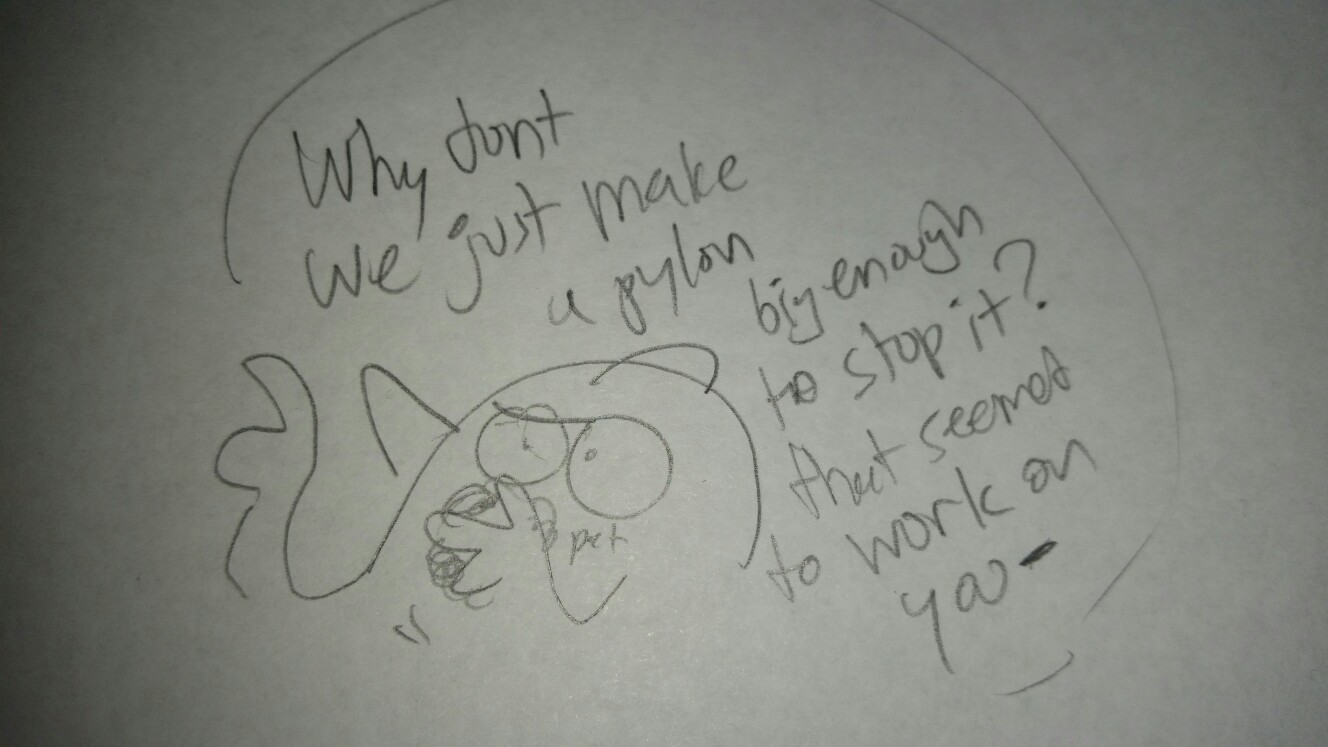 Why dont
we just make
a pylon
big enough
to stop it?
that seemed
to work on
you-
pet